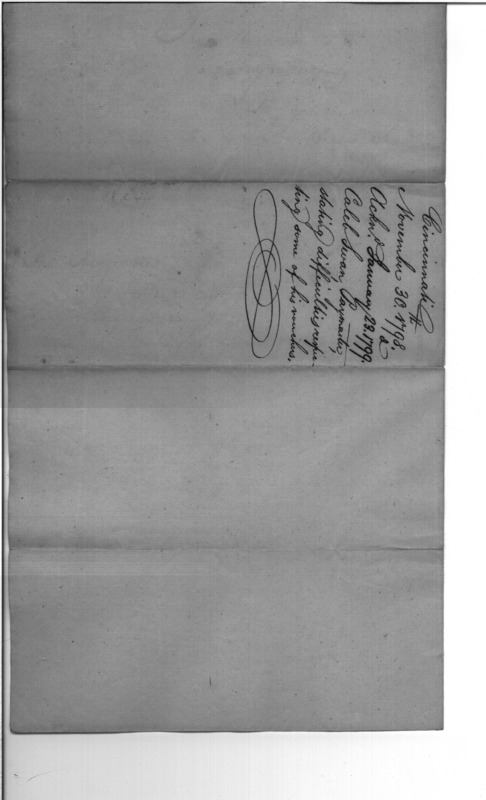 Cincinnati
November 30. 1798.
Ackn.d January 28. 1799.
Caleb Swan, Paymaster,
stating difficulties respec-
ting some of his vouchers.